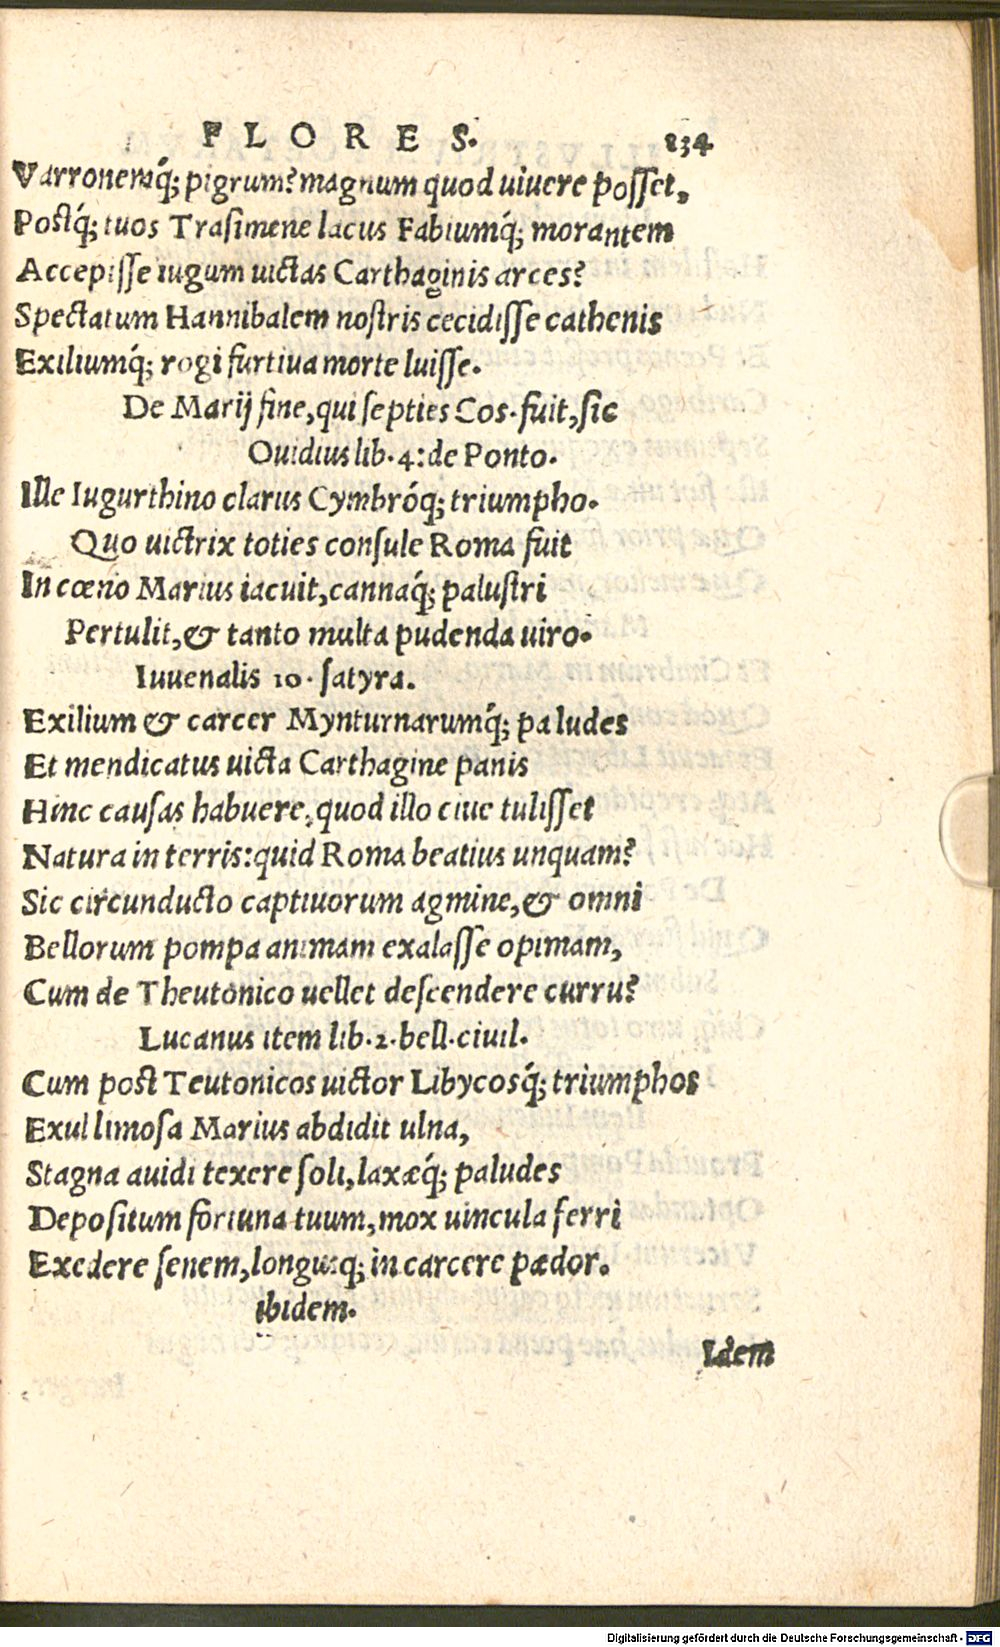 FLORES. 234
Varronemq́; pigrum? magnum quod uiuere posset,
Postq́; tuos Trasimene lacus Fabiumq́; morantem
Accepisse iugum uictas Carthaginis arces?
Spectatum Hannibalem nostris cecidisse cathenis
Exiliumq́; rogi furtiua morte luisse.
De Marij fine, qui septies Cos. fuit, sic
Ouidius lib. 4: de Ponto.
Ille Iugurthino clarus Cymbróq; triumpho.
Quo uictrix toties consule Roma fuit
In cœno Marius iacuit, cannaq́; palustri
Pertulit, & tanto multa pudenda uiro.
Iuuenalis 10. satyra.
Exilium & carcer Mynturnarumq́; paludes
Et mendicatus uicta Carthagine panis
Hinc causas habuere, quod illo ciue tulisset
Natura in terris: quid Roma beatius unquam?
Sic circunducto captiuorum agmine, & omni
Bellorum pompa animam exalasse opimam,
Cum de Theutonico uellet descendere curru?
Lucanus item lib. 2. bell. ciuil.
Cum post Teutonicos uictor Libycosq́; triumphos
Exul limosa Marius abdidit ulna,
Stagna auidi texere soli, laxæq́; paludes
Depositum fortuna tuum, mox uincula ferri
Exedere senem, longusq; in carcere pædor.
ibidem.
Idem
Digitalisierung gefördert durch die Deutsche Forschungsgemeinschaft - DFG